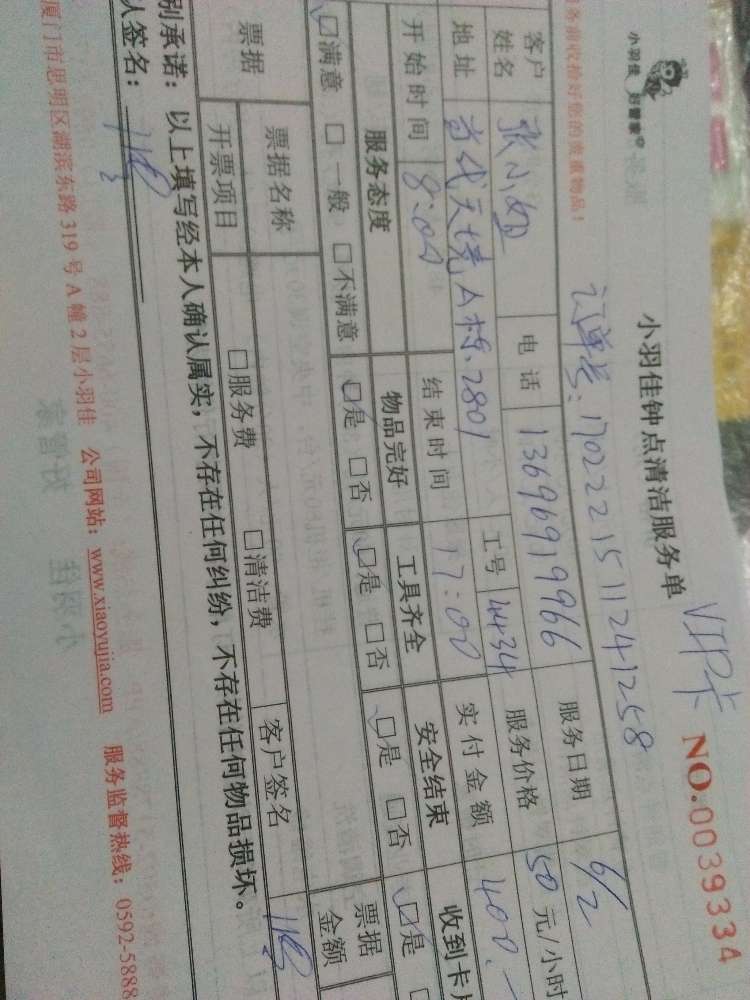 小羽佳 好管家
务前收拾好您的贵重物品！
小羽佳钟点清洁服务单
VIP卡
NO.0039334
订单号：1702221511241258
客户姓名 张小姐 电话 13696919966 服务日期 6/2
地址 当代天境A栋.2801 工号 4434 服务价格 50 元/小时
开始时间 8:00 结束时间 17:00 实付金额 400.
服务态度 物品完好 工具齐全 安全结束 收到卡
□满意 □一般 □不满意 □是 □否 □是 □否 □是 □否 □是
票据 票据名称 □服务费 □清洁费 票据金额
开票项目 客户签名
别承诺：以上填写经本人确认属实，不存在任何纠纷，不存在任何物品损坏。
人签名：
厦门市思明区湖滨东路 319 号 A 幢 2 层小羽佳 公司网站：www.xiaoyujia.com 服务监督热线：0592-5888